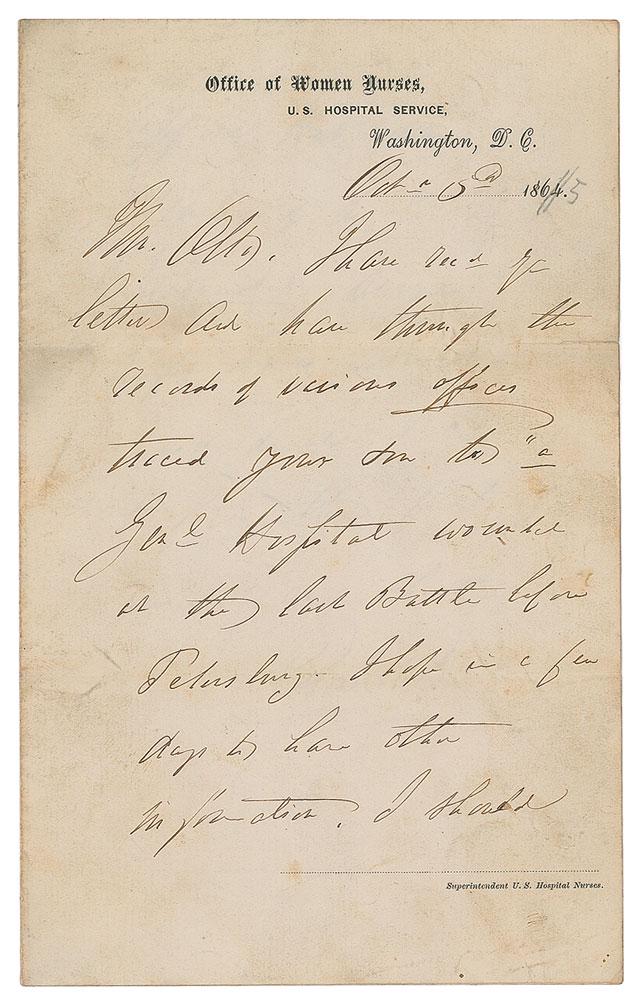 Office of Women Nurses,
U. S. HOSPITAL SERVICE,
Washington, D. C.
Oct r 5th 1864. 65
Mr. I have recd yr
letters and have through the
records of various offices
traced your son to "a
Genl Hospital wounded
at the last Battle before
Petersburg. I hope in a few
days to have other
information. I should
Superintendent U. S. Hospital Nurses.